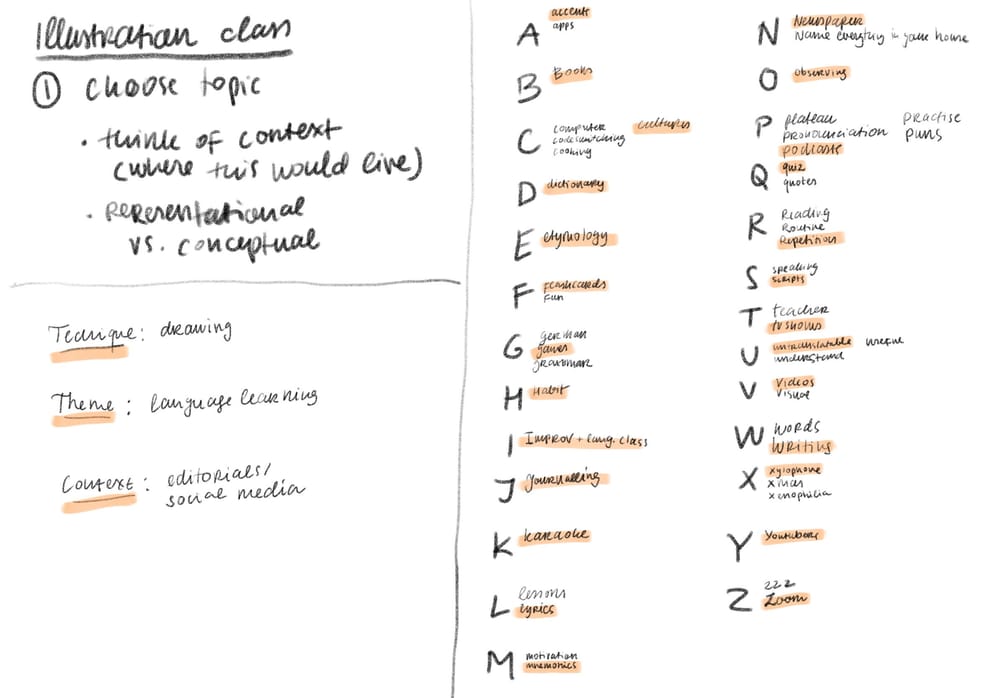 Illustration class
① choose topic
• think of context
(where this would live)
• Representational
vs. conceptual
Tecnique: drawing
Theme: Language learning
Context: editorials/
social media
A
accents
apps
B
Books
C
computer cultures
codeswitching
cooking
D
dictionary
E
etymology
F
Flashcards
Fun
G
german
games
grammar
H
Habit
I
Improv + lang. class
J
journalling
K
karaoke
L
lessons
lyrics
M
motivation
mnemonics
N
Newspaper
Name everything in your home
O
observing
P
plateau practise
pronounciation puns
podcasts
Q
quiz
quotes
R
Reading
Routine
Repetition
S
speaking
scripts
T
teacher
tv shows
U
untranslatable
understand
V
Videos
Visual
W
words
Writing
X
xylophone
xmas
xenophilia
Y
Youtubers
Z
zzz
Zoom